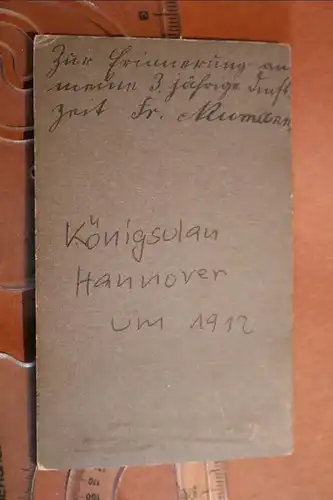 Zur Erinnerung an
meine 3. jährige Dienst
zeit Fr.
Königsulan
Hannover
um 1912